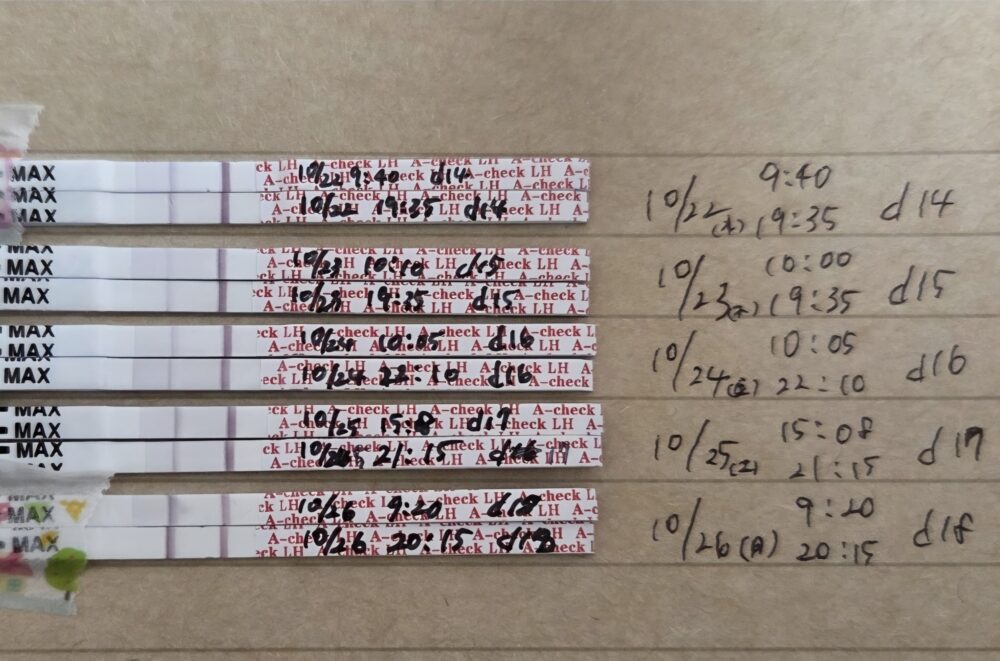 MAX
10/22 9:40 d14
MAX
10/22 19:35 d14
9:40
10/22(木) 19:35 d14
MAX
10/23 10:10 d15
MAX
10/23 19:35 d15
10:00
10/23(金) 19:35 d15
MAX
10:05 d16
MAX
10/24 22:10 d16
10:05
10/24(金) 22:10 d16
MAX
10/25 15:8 d17
MAX
21:15 17
15:08
10/25(土) 21:15 d17
MAX
10/26 9:20 d18
MAX
10/26 20:15 d18
9:20
10/26(日) 20:15 d18
A-check LH